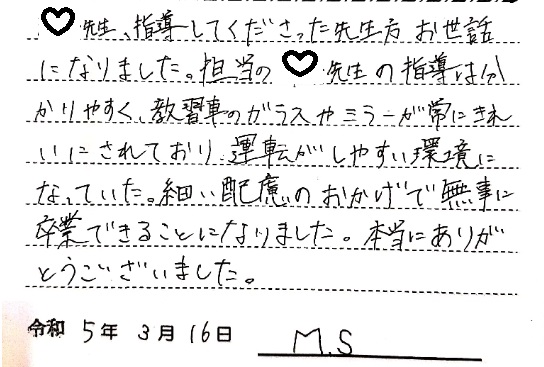 ♡先生、指導してくださった先生方お世話
になりました。担当の♡先生の指導は分
かりやすく、教習車のガラスやミラーが常にきれ
いにされており、運転がしやすい環境に
なっていた。細い配慮のおかげで無事に
卒業できることになりました。本当にありが
とうございました。
令和 5年 3月 16日 M.S